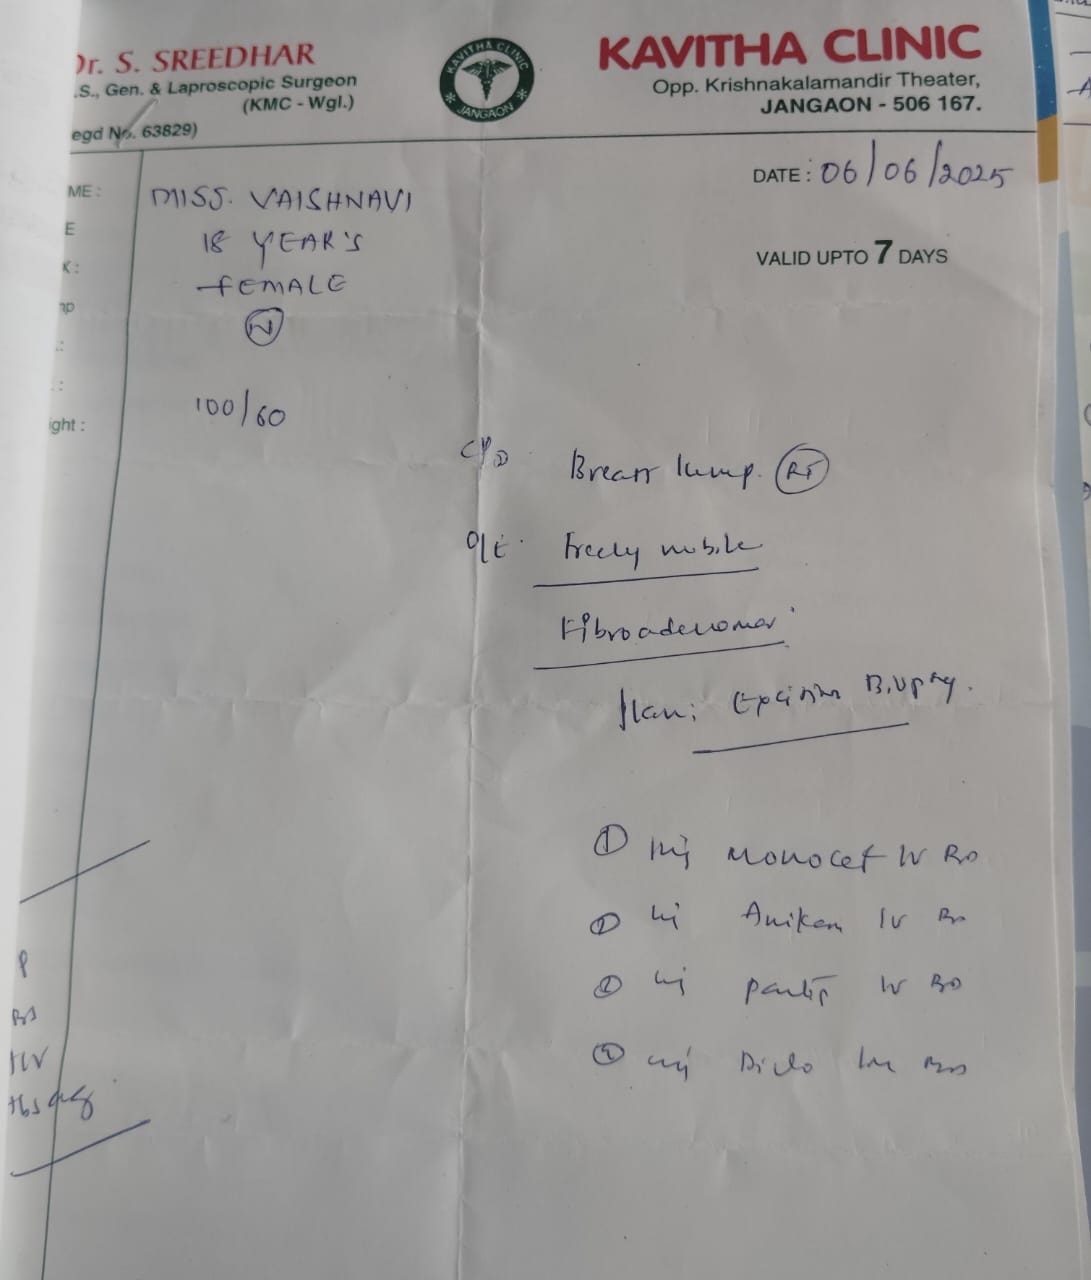 Dr. S. SREEDHAR
.S., Gen. & Laproscopic Surgeon
(KMC - Wgl.)
egd No. 63829)
KAVITHA CLINIC
JANGAON
KAVITHA CLINIC
Opp. Krishnakalamandir Theater,
JANGAON - 506 167.
DATE : 06/06/2025
VALID UPTO 7 DAYS
ME : MISS. VAISHNAVI
E 18 YEAR'S
X : FEMALE
mp N
ight :
100/60
C/o Breast lump. RT
O/E. Freely mobile
Fibroadenoma
Plan: Excision Biopsy.
① Inj Monocef IV BD
② Inj Amikam IV BD
Inj Pantop IV BD
④ Inj Diclo Im BD
P
BS
HIV
HbsAg